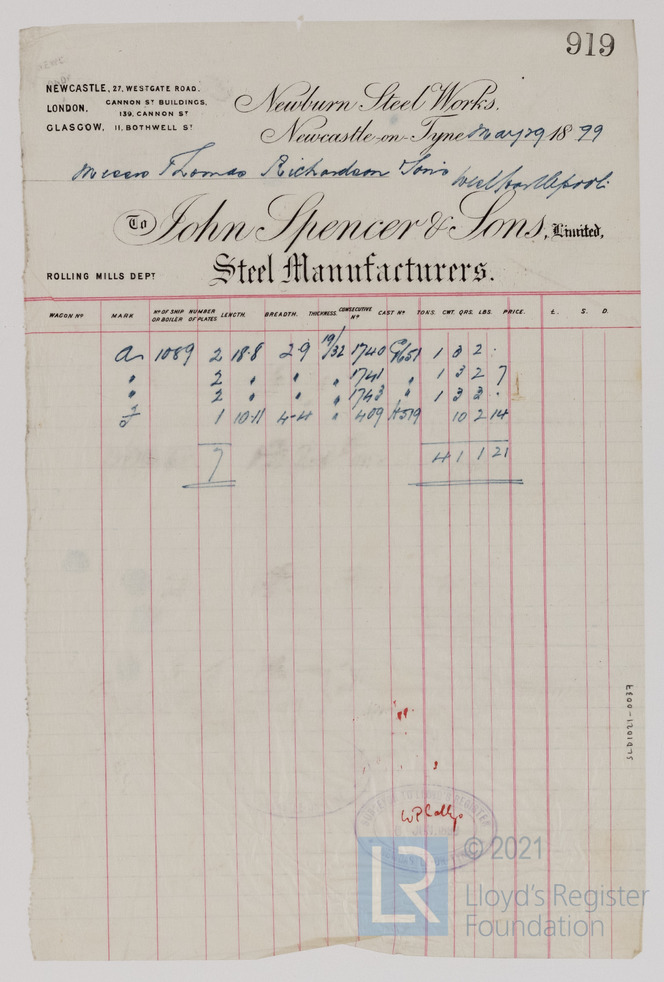 919
NEWCASTLE, 27, WESTGATE ROAD.
LONDON, CANNON ST BUILDINGS, 139, CANNON ST
GLASGOW, 11, BOTHWELL ST
Newburn Steel Works,
Newcastle-on-Tyne May 29 1899
Messrs Thomas Richardson & Sons West Hartlepool
To John Spencer & Sons, Limited,
ROLLING MILLS DEPT Steel Manufacturers.
WAGON No MARK No OF SHIP OR BOILER NUMBER OF PLATES LENGTH. BREADTH. THICKNESS. CONSECUTIVE No CAST No TONS. CWT. QRS. LBS. PRICE. £. S. D.
a 1089 2 18.8 29 19/32 1740 1 3 2 .
" 2 " " " 1741 " 1 3 2 7
" 2 " " " 1743 " 1 3 3 .
1 10-11 4-4 " 409 10 2 14
7 4 1 1 21
SLD1021-0037
© 2021
LR
Lloyd's Register
Foundation